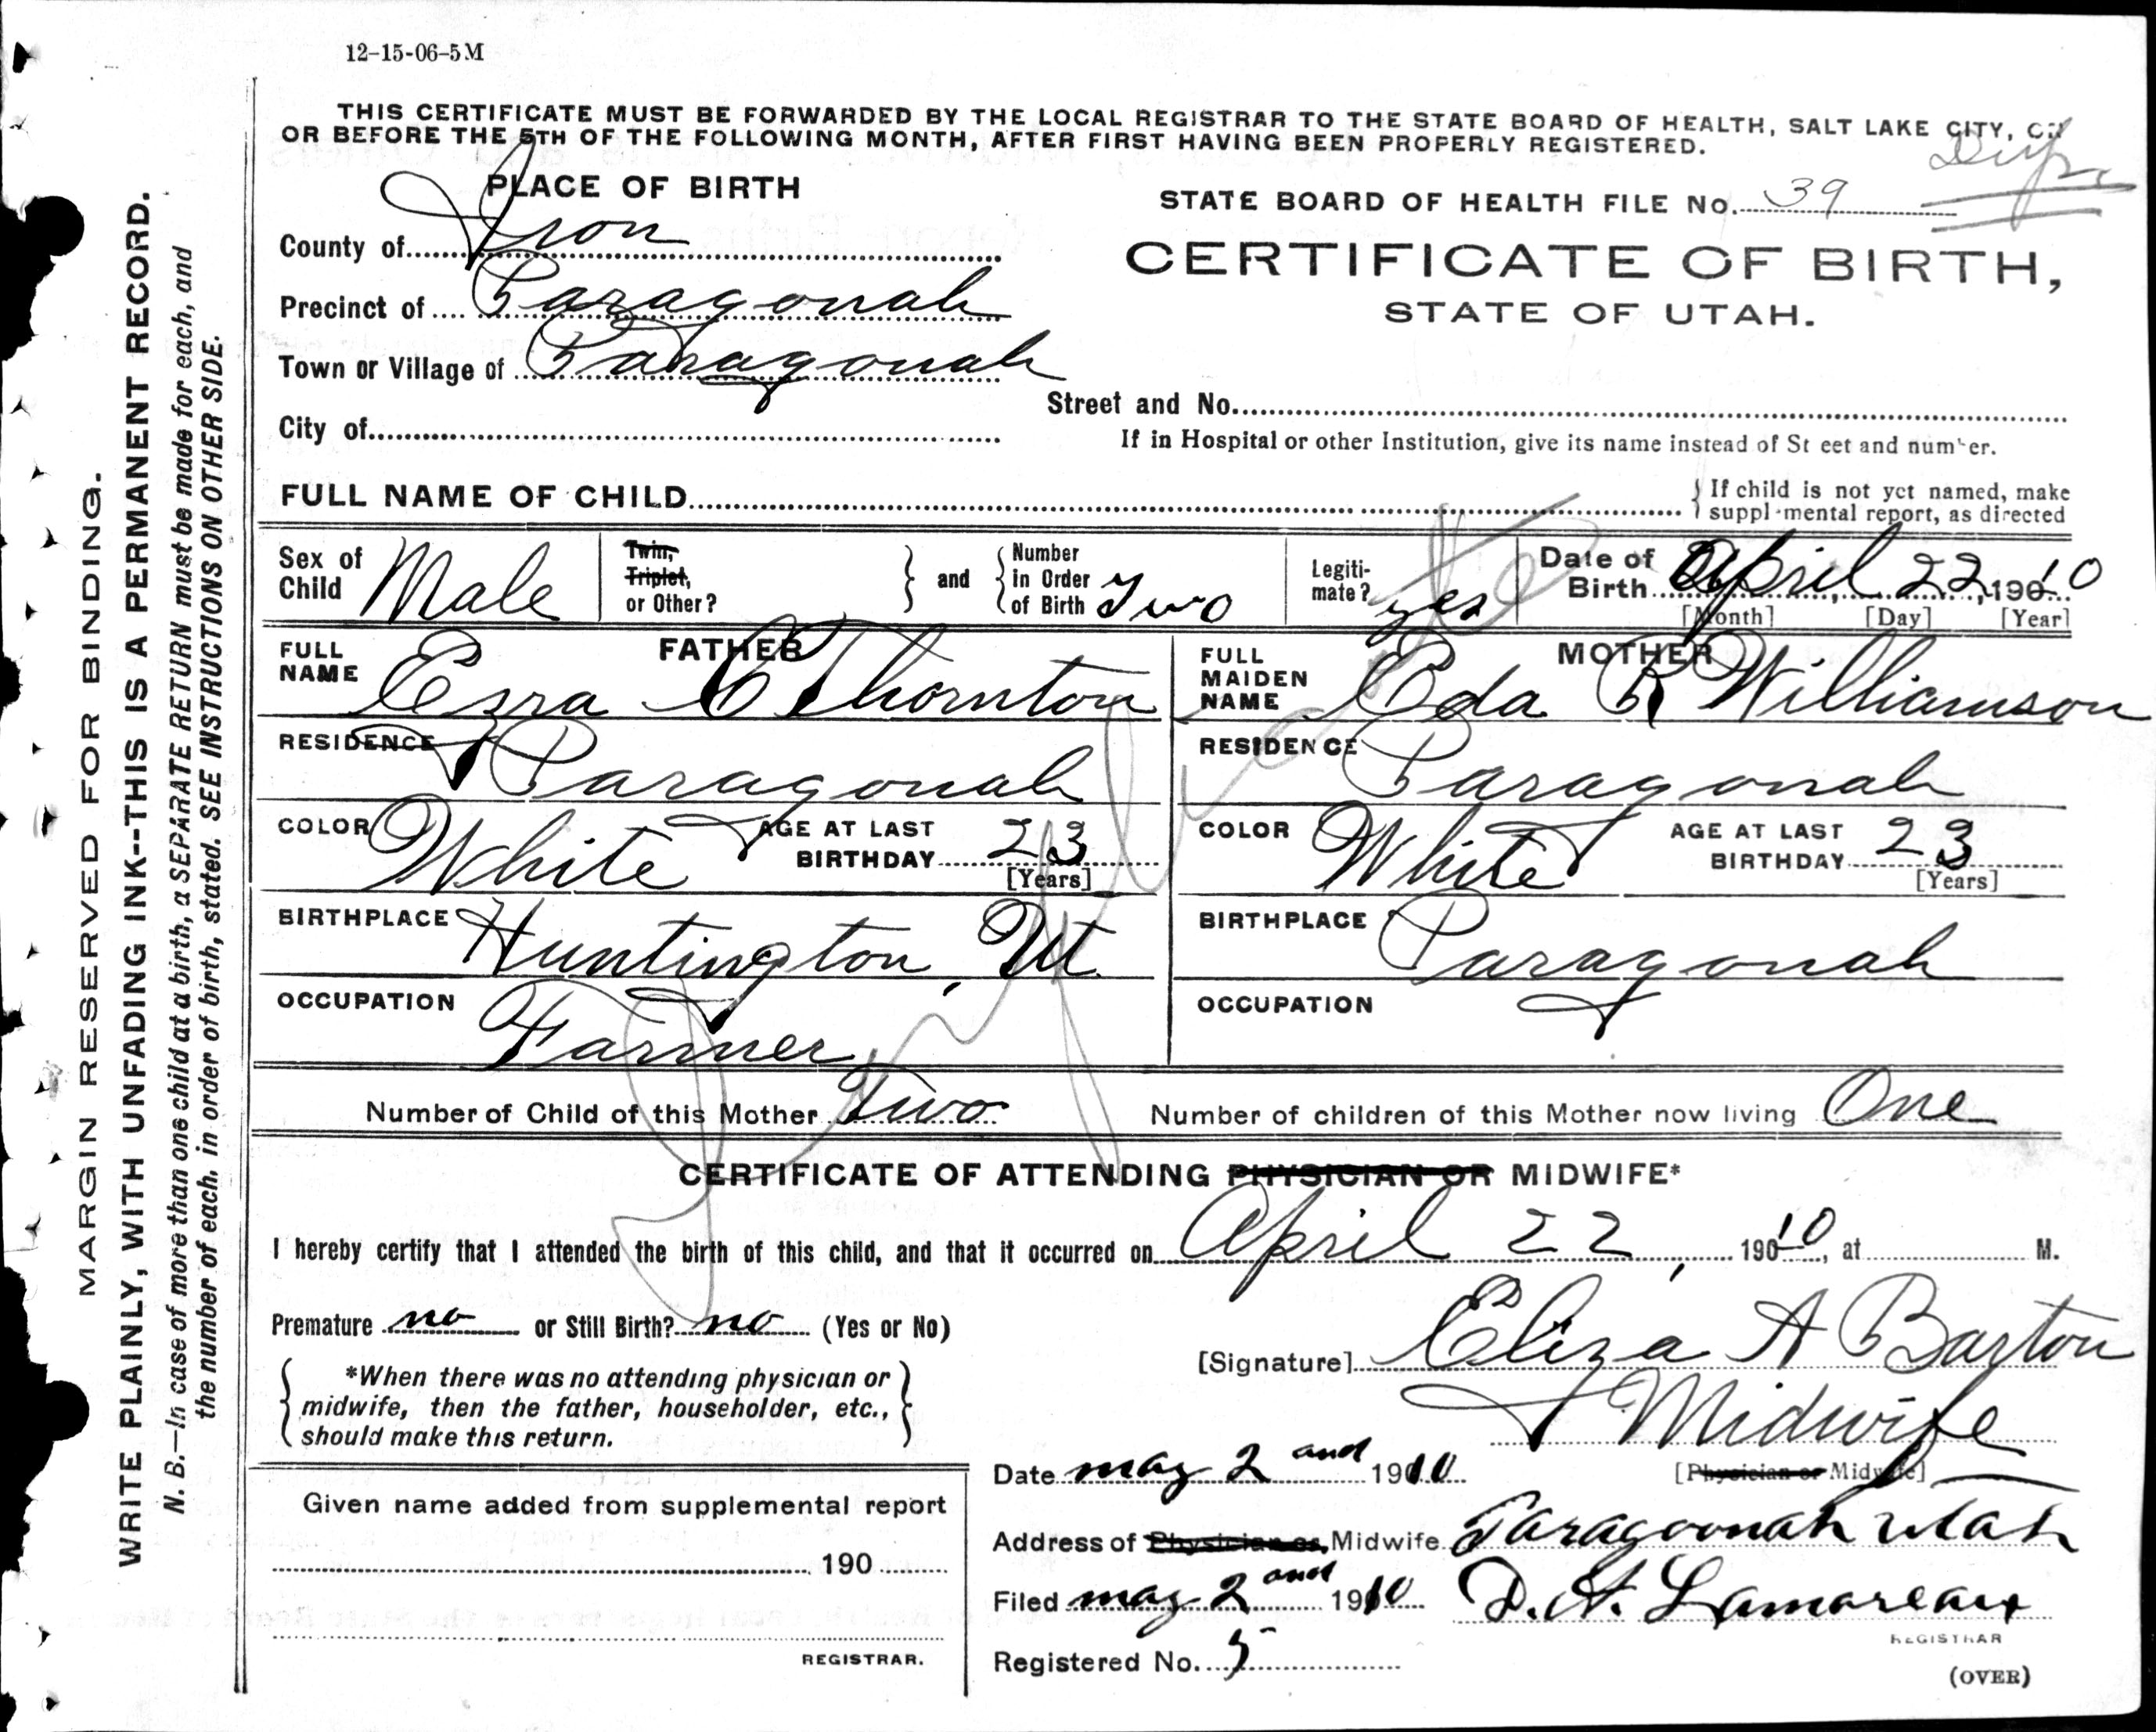 12-15-06-5M
THIS CERTIFICATE MUST BE FORWARDED BY THE LOCAL REGISTRAR TO THE STATE BOARD OF HEALTH, SALT LAKE CITY,
OR BEFORE THE 5TH OF THE FOLLOWING MONTH, AFTER FIRST HAVING BEEN PROPERLY REGISTERED.
Dup.
PLACE OF BIRTH
STATE BOARD OF HEALTH FILE No. 39
County of Iron
CERTIFICATE OF BIRTH,
Precinct of Paragonah
STATE OF UTAH.
Town or Village of Paragonah
Street and No.
City of
If in Hospital or other Institution, give its name instead of St eet and number.
FULL NAME OF CHILD
If child is not yet named, make
suppl mental report, as directed
Sex of Child Male
Twin, Triplet, or Other?
and
Number in Order of Birth Two
Legiti-mate? yes
Date of Birth April 22, 1910
[Month] [Day] [Year]
FATHER
FULL NAME Ezra C Thornton
MOTHER
FULL MAIDEN NAME Eda R Williamson
RESIDENCE Paragonah
RESIDENCE Paragonah
COLOR White AGE AT LAST BIRTHDAY 23 [Years]
COLOR White AGE AT LAST BIRTHDAY 23 [Years]
BIRTHPLACE Huntington, Ut
BIRTHPLACE Paragonah
OCCUPATION Farmer
OCCUPATION
Duplicate
Number of Child of this Mother Two
Number of children of this Mother now living One
CERTIFICATE OF ATTENDING PHYSICIAN OR MIDWIFE*
I hereby certify that I attended the birth of this child, and that it occurred on April 22, 1910, at M.
Premature no or Still Birth? no (Yes or No)
[Signature] Eliza A Barton
*When there was no attending physician or
midwife, then the father, householder, etc.,
should make this return.
Midwife
[Physician or Midwife]
Date may 2 and 1910
Given name added from supplemental report
Address of Physician or Midwife Paragoonah utah
190
Filed may 2 and 1910 D. A. Lamoreaux
REGISTRAR
REGISTRAR.
Registered No. 5
(OVER)
MARGIN RESERVED FOR BINDING.
WRITE PLAINLY, WITH UNFADING INK--THIS IS A PERMANENT RECORD.
N. B.—In case of more than one child at a birth, a SEPARATE RETURN must be made for each, and
the number of each, in order of birth, stated. SEE INSTRUCTIONS ON OTHER SIDE.